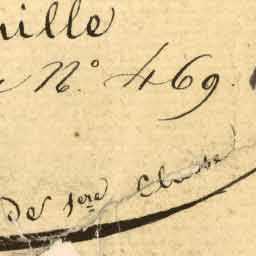 ille
N.° 469.
De 1ere Classe